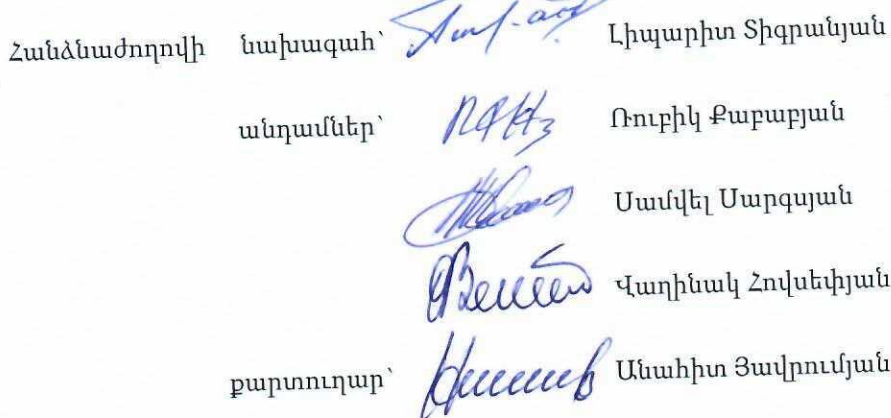 Հանձնաժողովի նախագահ՝ Լիպարիտ Տիգրանյան
անդամներ՝ Ռուբիկ Քաբաբյան
Սամվել Սարգսյան
Վաղինակ Հովսեփյան
քարտուղար՝ Անահիտ Յավրումյան